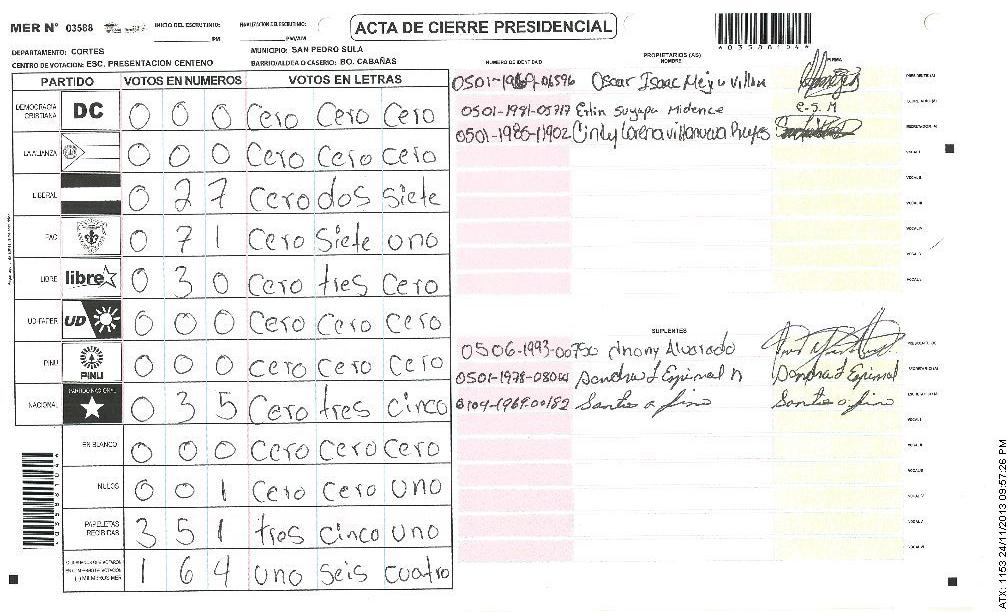 MER Nº 03588 INICIO DEL ESCRUTINIO: PM FINALIZACION DEL ESCRUTINIO: PM/AM ACTA DE CIERRE PRESIDENCIAL
DEPARTAMENTO: CORTES MUNICIPIO: SAN PEDRO SULA
CENTRO DE VOTACION: ESC. PRESENTACION CENTENO BARRIO/ALDEA O CASERIO: BO. CABAÑAS
PARTIDO VOTOS EN NUMEROS VOTOS EN LETRAS
DEMOCRACIA CRISTIANA DC 0 0 0 Cero Cero Cero
LA ALIANZA 0 0 0 Cero Cero Cero
LIBERAL 0 2 7 Cero dos siete
PAC 0 7 1 Cero siete uno
LIBRE libre 0 3 0 Cero tres Cero
UD-FAPER UD 0 0 0 Cero Cero Cero
PINU PINU 0 0 0 Cero Cero Cero
NACIONAL PARTIDO NACIONAL 0 3 5 Cero tres cinco
EN BLANCO 0 0 0 Cero Cero Cero
NULOS 0 0 1 Cero Cero uno
PAPELETAS RECIBIDAS 3 5 1 tres cinco uno
1 6 4 uno seis cuatro
NUMERO DE IDENTIDAD PROPIETARIOS (AS) NOMBRE FIRMA
Oscar Isaac
0501-1981-05717 Erlin Suyapa Midence e.S.M
0501-1986-11902 Cindy Lorena Villanueva Reyes
SUPLENTES
0506-1993-00750 Alvarado
0501-1978-08044 Sandra
0104-1969-00182 Santos
ATX: 1153 24/11/2013 09:57:26 PM